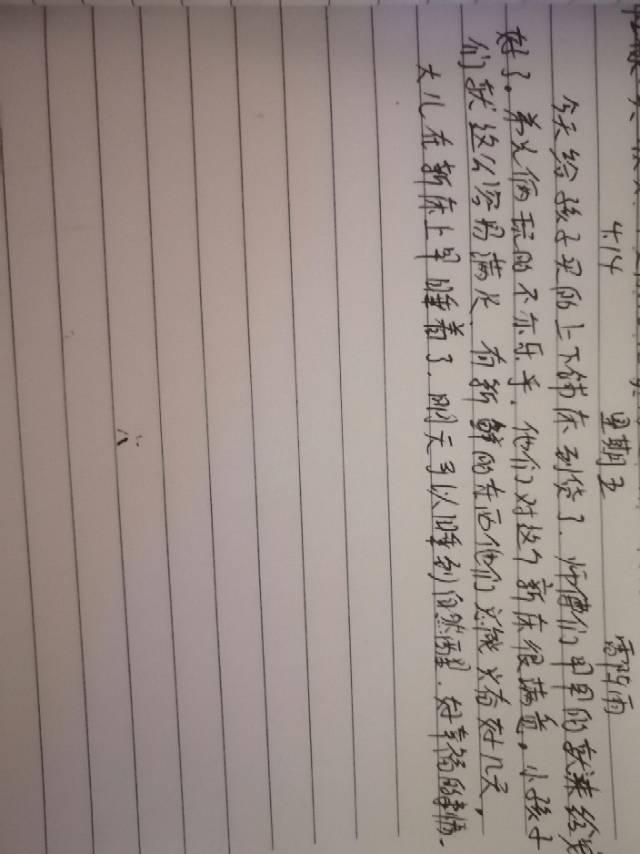 4.14 星期五 雷阵雨
今天给孩子买的上下铺床到货了、师傅们早早的就来给安
好了。弟兄俩玩的不亦乐乎、他们对这个新床很满意。小孩子
们就这么容易满足、有新鲜的东西他们又能兴奋好几天，
大儿在新床上早睡着了、明天可以睡到自然醒、好幸福的事情、